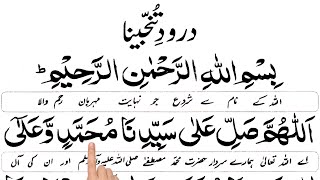 درود تنجینا
بِسْمِ اللهِ الرَّحْمٰنِ الرَّحِیْمِ ط
اللہ کے نام سے شروع جو نہایت مہربان رحم والا
اَللّٰهُمَّ صَلِّ عَلٰی سَیِّدِنَا مُحَمَّدٍ وَّعَلٰٓی
اے اللہ تعالیٰ ہمارے سردار حضرت محمد مصطفےٰ صلی اللہ علیہ وسلم اور ان کی آل